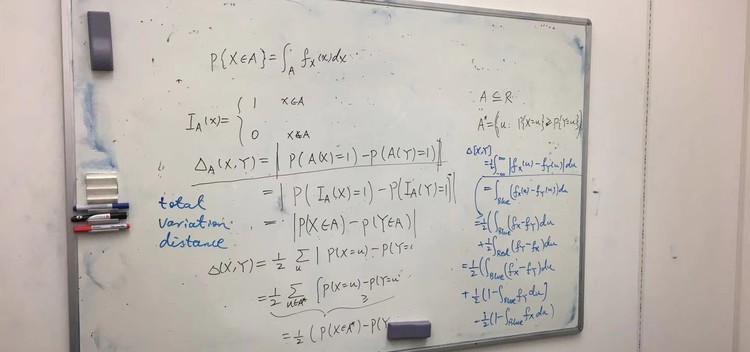 P{X∈A} = ∫_A f_X(x)dx
I_A(x) = { 1 x∈A
0 x∉A
Δ_A(X,Y) = | P(A(X)=1) - P(A(Y)=1) |
= | P(I_A(X)=1) - P(I_A(Y)=1) |
= | P(X∈A) - P(Y∈A) |
total
variation
distance
Δ(X,Y) = 1/2 Σ_u | P(X=u) - P(Y=
= 1/2 Σ_{u∈A*} [ P(X=u) - P(Y=u
= 1/2 ( P(X∈A*) - P(Y
A ⊆ R
A* = {u: P{X=u} ≥ P{Y=u}}
Δ(X,Y)
= 1/2 ∫_{-∞}^{∞} |f_X(u) - f_Y(u)| du
= ∫_{Blue} (f_X(u) - f_Y(u)) du
= 1/2 ( ∫_{Blue} (f_X - f_Y) du
+ 1/2 ∫_{Red} (f_Y - f_X) du
= 1/2 ( ∫_{Blue} (f_X - f_Y) du
+ 1/2 (1 - ∫_{Blue} f_Y du]
- 1/2 (1 - ∫_{Blue} f_X du)